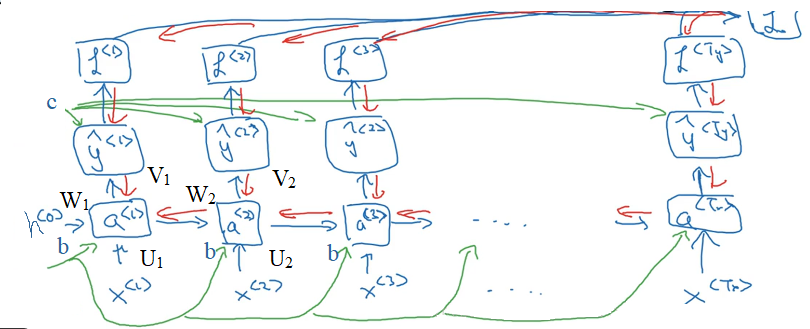 ℒ
ℒ<1> ℒ<2> ℒ<3> ℒ<Ty>
c
ŷ<1> ŷ<2> ŷ<2> ŷ<Ty>
V₁ V₂
W₁ W₂
h<0> a<1> a<2> a<3> .... a<Tx>
b b b
U₁ U₂
x<1> x<2> x<3> .... x<Tx>